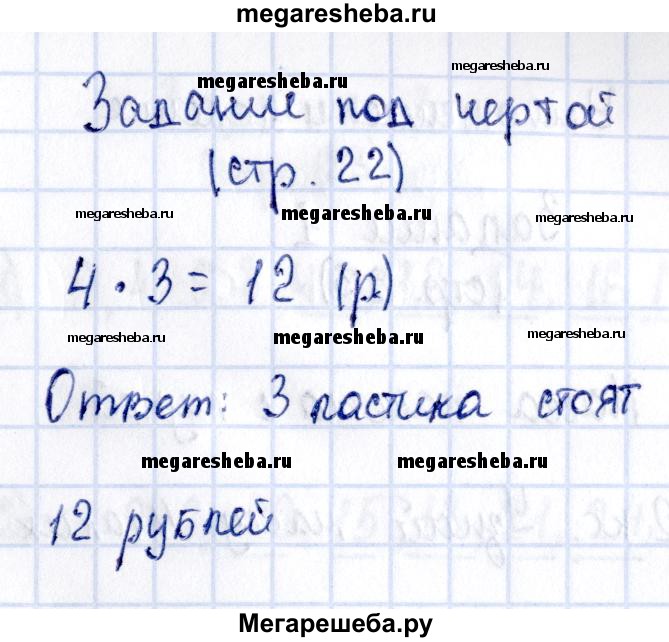 megaresheba.ru
megaresheba.ru
megaresheba.ru
Задание под чертой
(стр. 22)
megaresheba.ru
megaresheba.ru
megaresheba.ru
4 · 3 = 12 (р)
megaresheba.ru
megaresheba.ru
megaresheba.ru
Ответ: 3 ластика стоят
megaresheba.ru
megaresheba.ru
12 рублей
Мегарешеба.ру